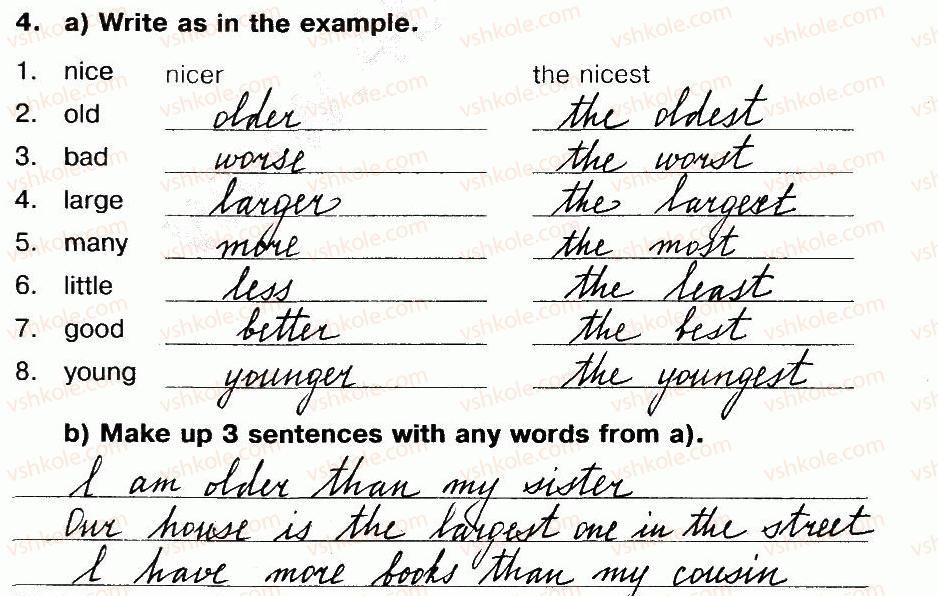 4. a) Write as in the example.
1. nice nicer the nicest
2. old older the oldest
3. bad worse the worst
4. large larger the largest
5. many more the most
6. little less the least
7. good better the best
8. young younger the youngest
b) Make up 3 sentences with any words from a).
I am older than my sister
Our house is the largest one in the street
I have more books than my cousin